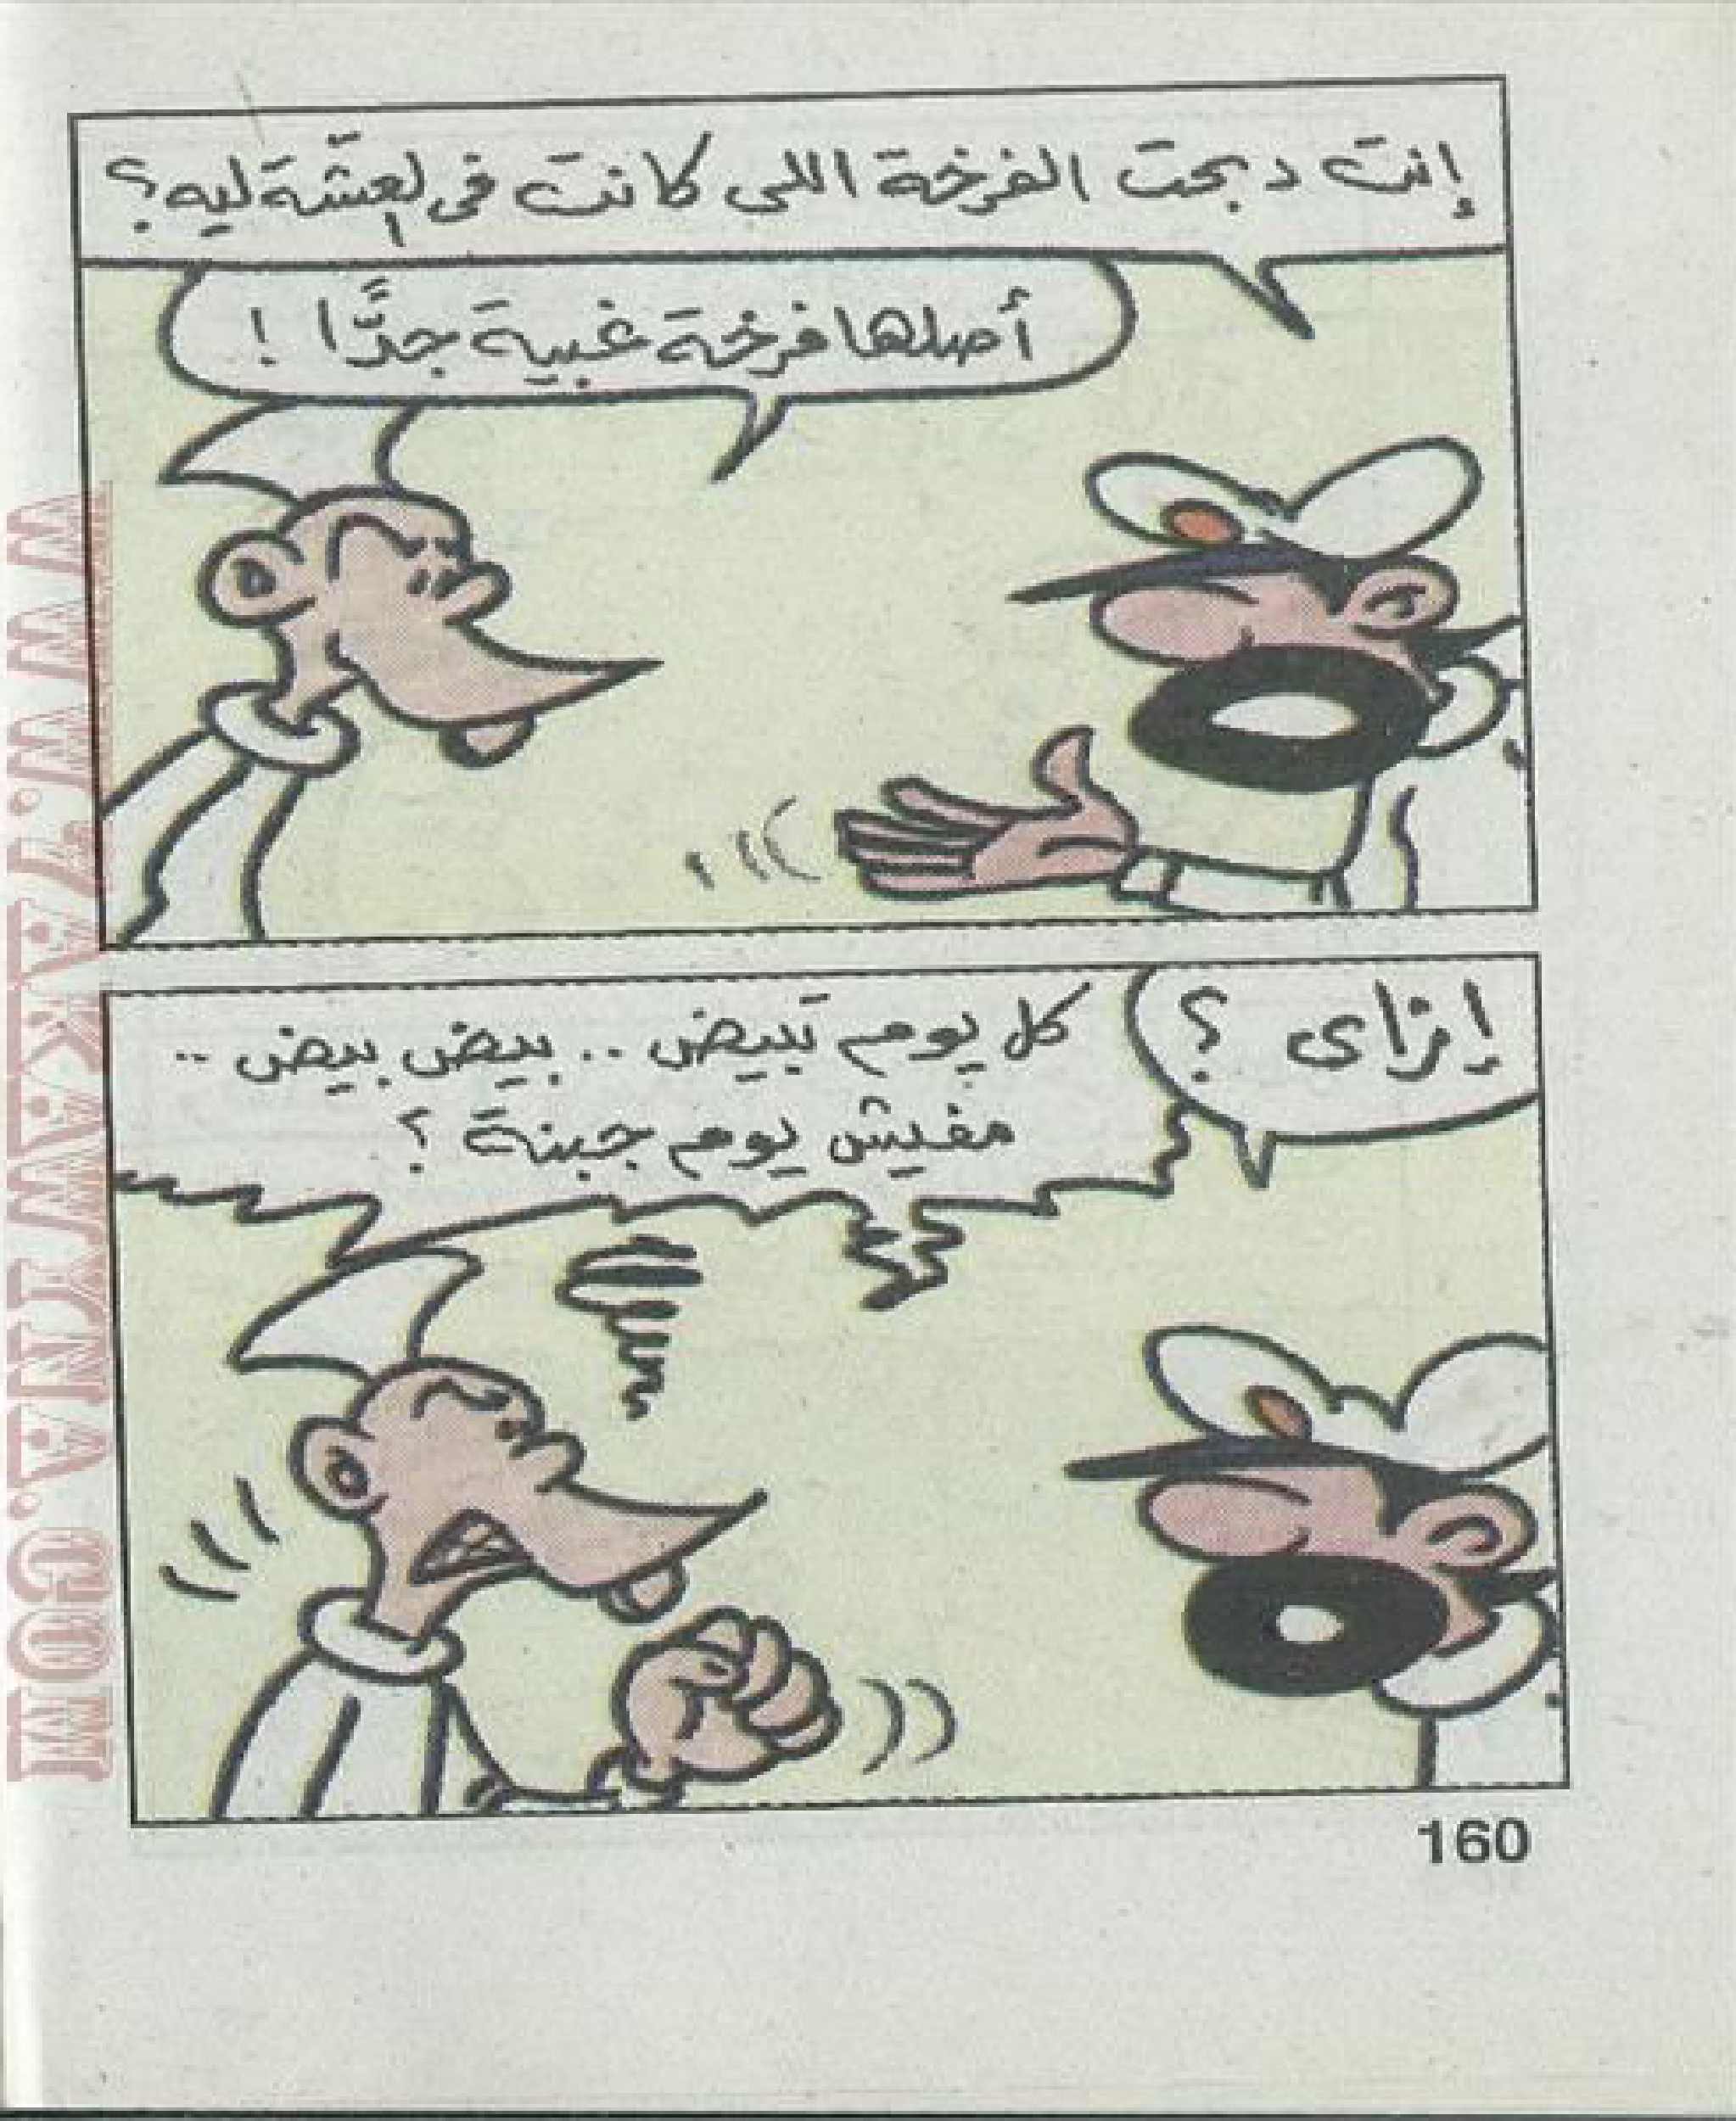 إنت دبحت الفرخة اللى كانت فى العِشّة ليه؟
أصلها فرخة غبية جدًّا !
إزاى ؟
كل يوم تَبيض .. بيض بيض ..
مفيش يوم جبنة ؟
160
WWW.7AKAWINA.COM